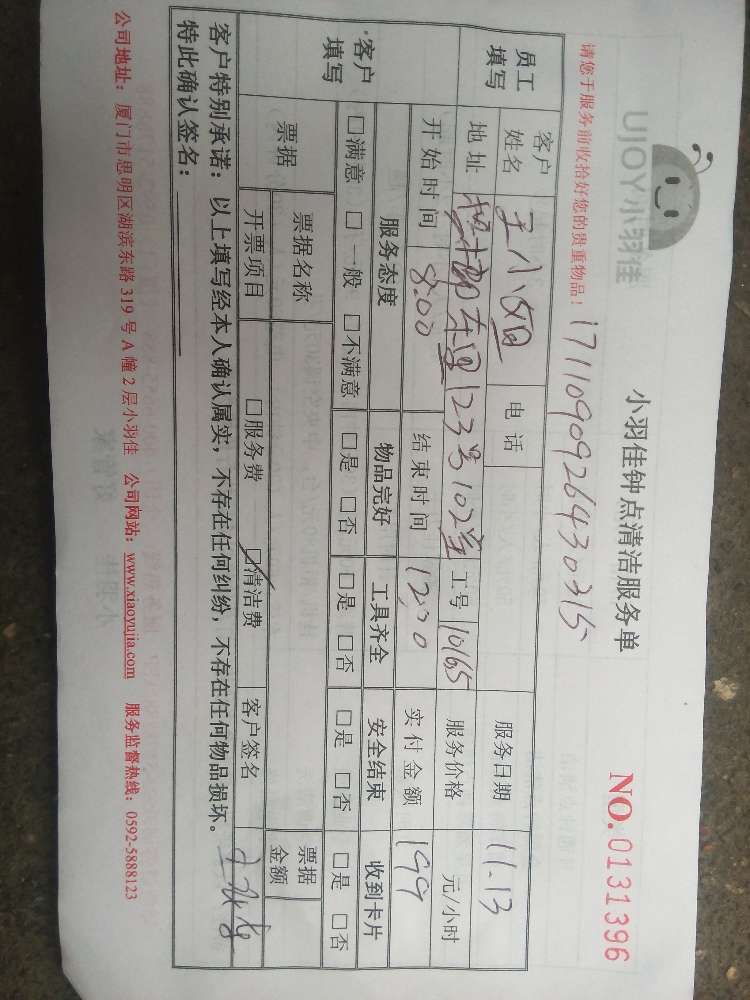 UJOY小羽佳
小羽佳钟点清洁服务单
NO. 0131396
请您于服务前收拾好您的贵重物品!
1711090926430315
员工填写 客户姓名 王小姐 电话 服务日期 11.13
地址 123号102室 工号 10165 服务价格 元/小时
开始时间 8:00 结束时间 12:00 实付金额 199
客户填写 服务态度 物品完好 工具齐全 安全结束 收到卡片
□满意 □一般 □不满意 □是 □否 □是 □否 □是 □否 □是 □否
票据 票据名称 票据金额
开票项目 □服务费 □清洁费 客户签名
客户特别承诺:以上填写经本人确认属实,不存在任何纠纷,不存在任何物品损坏。
特此确认签名:
公司地址:厦门市思明区湖滨东路 319 号 A 幢 2 层小羽佳 公司网站:www.xiaoyujia.com 服务监督热线:0592-5888123